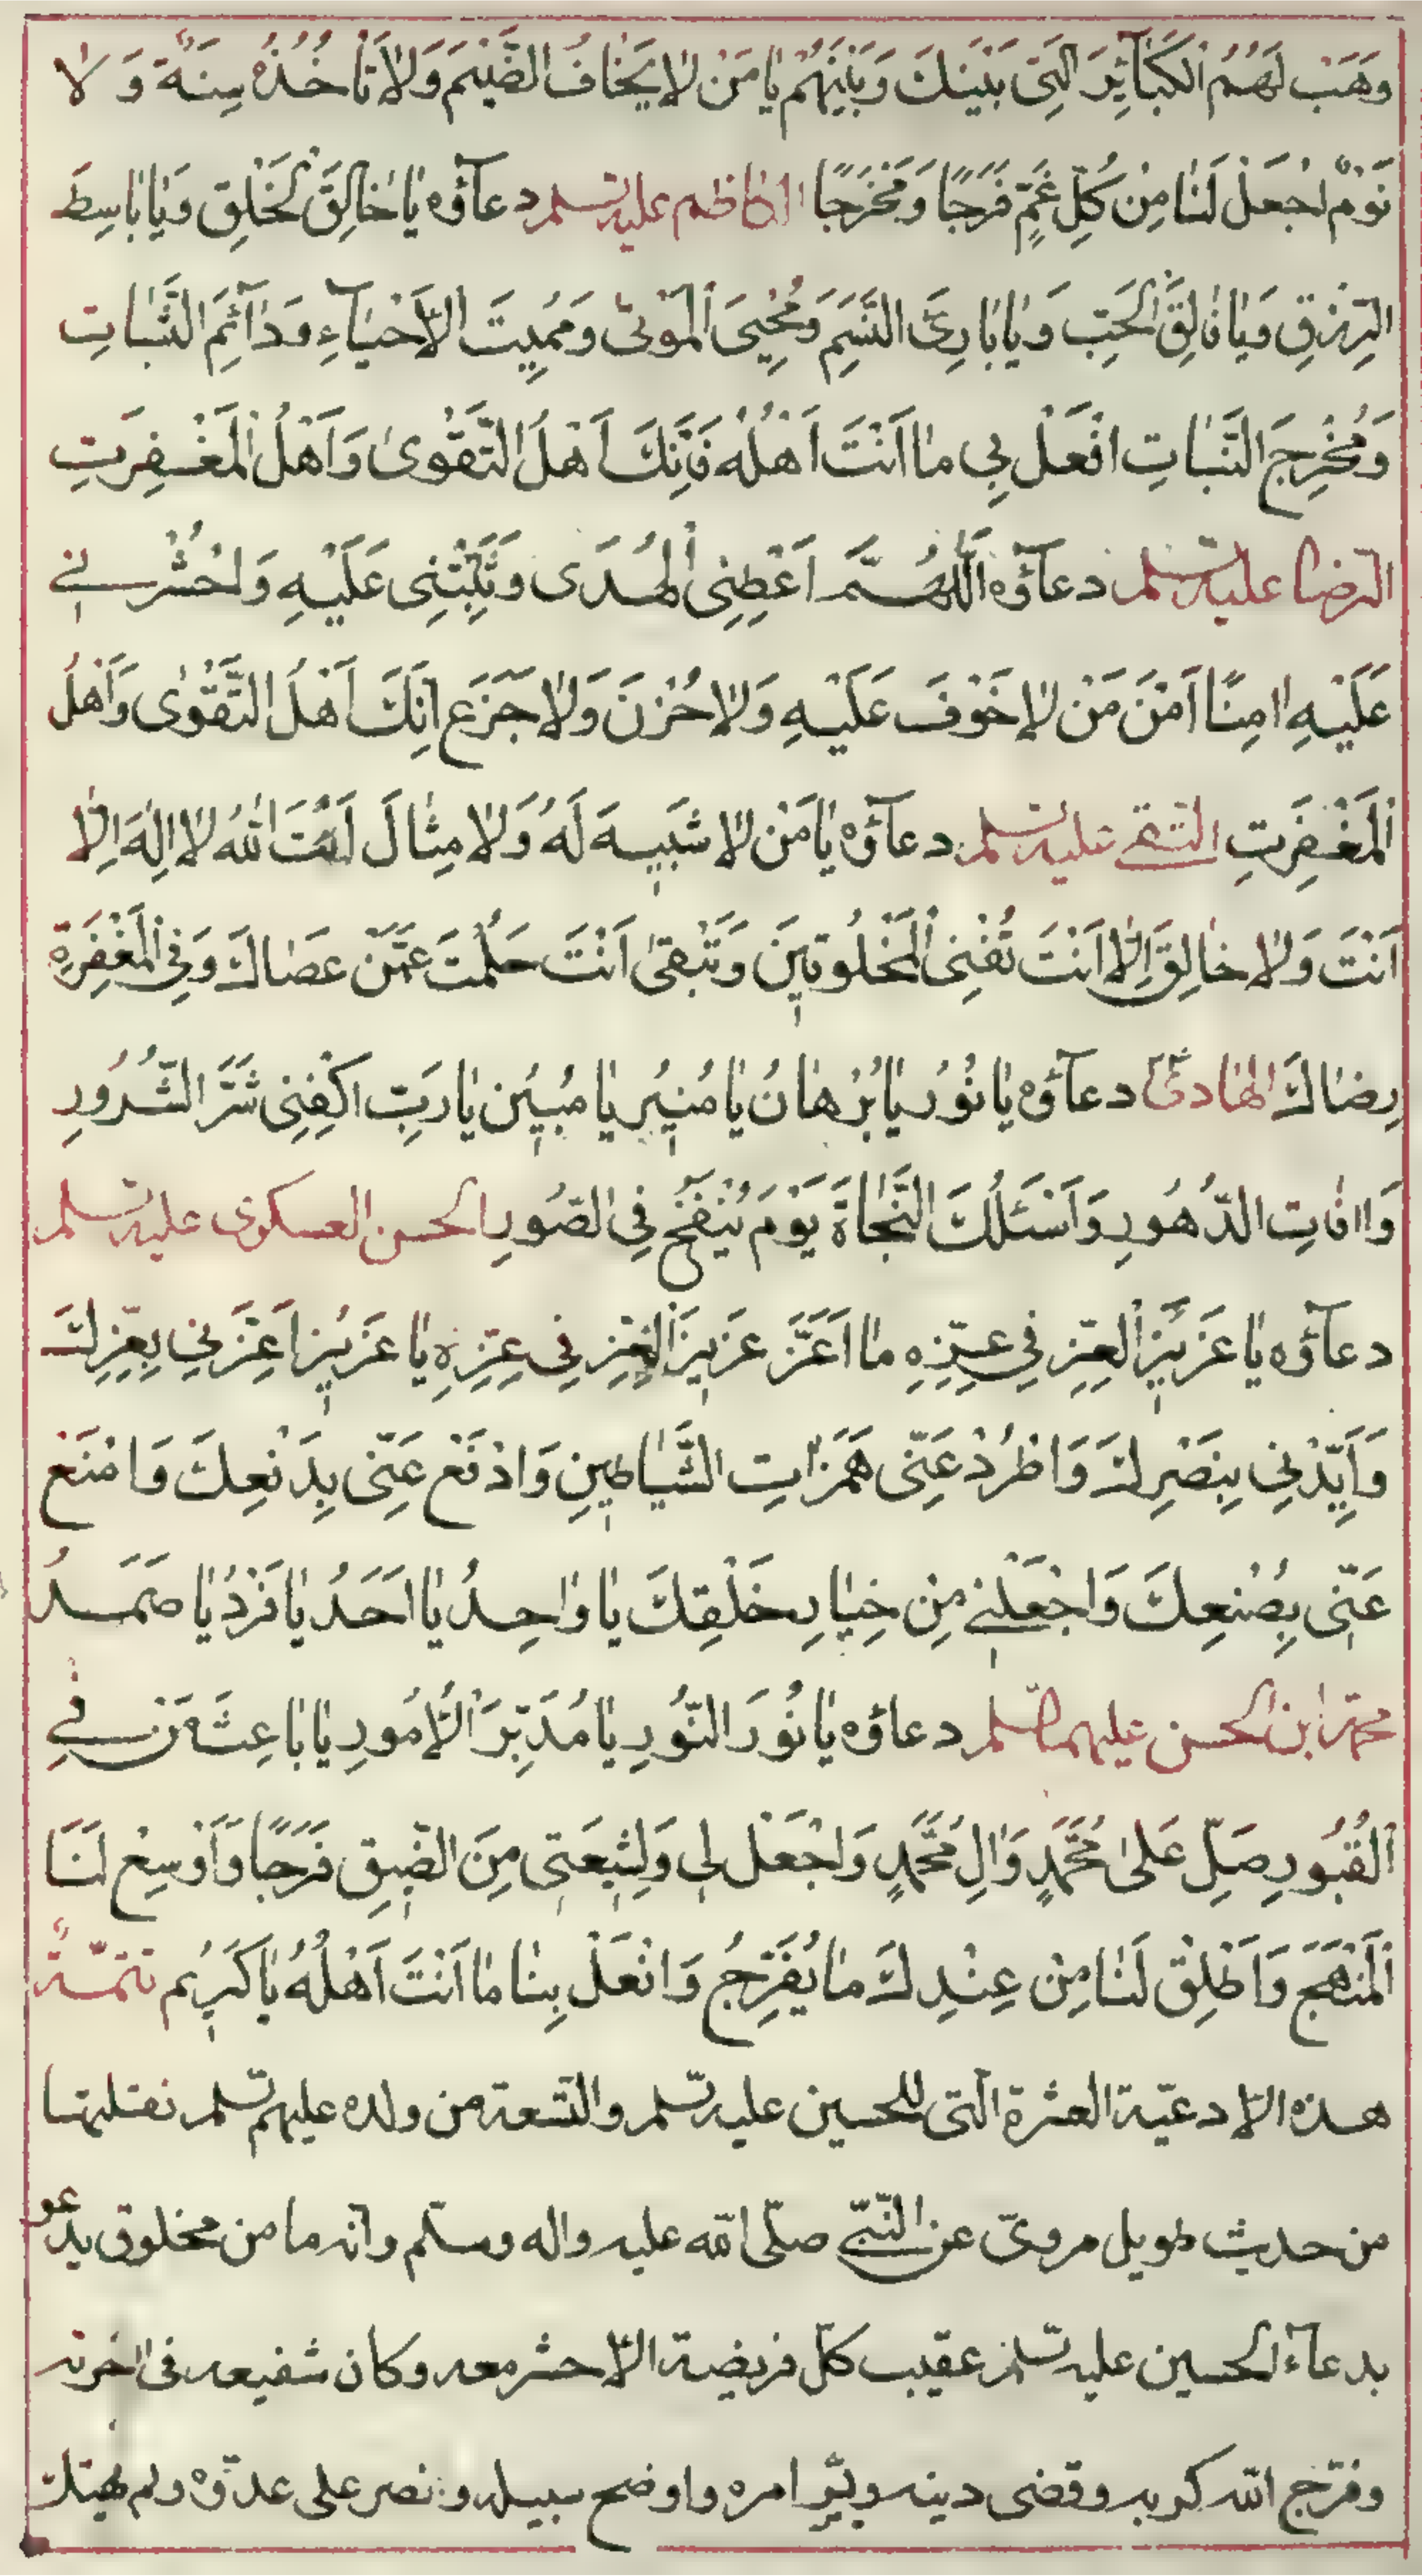 وَهَبْ لَهُمُ الْكَبَآئِرَ الَّتِی بَیْنَكَ وَبَیْنَهُمْ یٰا مَنْ لٰا یَخٰافُ الضَّیْمَ وَلٰا تَأخُذُهُ سِنَةٌ وَ لٰا
نَوْمٌ اجْعَلْ لَنٰا مِنْ كُلِّ غَمٍّ فَرَجًا وَمَخْرَجًا الكاظم علیه السلم دعآؤه یٰا خٰالِقَ الْخَلْقِ وَیٰا بٰاسِطَ
الرِّزْقِ وَیٰا فٰالِقَ الْحَبِّ وَ یٰا بٰارِئَ النَّسَمِ وَمُحْیِیَ الْمَوْتیٰ وَمُمِیتَ الْأَحْیٰآءِ وَ دٰآئِمَ الثَّبٰاتِ
وَمُخْرِجَ النَّبٰاتِ افْعَلْ بِی مٰا اَنْتَ اَهْلُهُ فَاِنَّكَ اَهْلَ التَّقْوىٰ وَاَهْلُ الْمَغْفِرَتِ
الرضا علیه السلم دعآؤه اَللّٰهُمَّ اَعْطِنِی الْهُدَى وَثَبِّتْنِی عَلَیْهِ وَاحْشُرْنی
عَلَیْهِ اٰمِنًا اَمْنَ مَنْ لٰا خَوْفَ عَلَیْهِ وَلٰا حُزْنَ وَلٰا جَزَعَ اِنَّكَ اَهْلَ التَّقْوٰى وَاَهْلُ
الْمَغْفِرَتِ التقی علیه السلم دعآؤه یٰا مَنْ لٰا شَبِیهَ لَهُ وَلٰا مِثٰالَ اَنْتَ اللّٰهُ لٰا اِلٰهَ اِلّٰا
اَنْتَ وَلٰا خٰالِقَ اِلّٰا اَنْتَ تُفْنِی الْمَخْلُوقِینَ وَتَبْقیٰ اَنْتَ حَلُمْتَ عَمَّنْ عَصٰاكَ وَفِی الْمَغْفِرَةِ
رِضٰاكَ الهٰادی دعآؤه یٰا نُوْرُ یٰا بُرْهٰانُ یٰا مُنِیُر یٰا مُبِیُن یٰا رَبِّ اكْفِنِی شَرَّ الشُّرُورِ
وَاٰافٰاتِ الدُّهُورِ وَاَسْئَلُكَ النَّجٰاةَ یَوْمَ یُنْفَخُ فِی الصُّورِ الحسن العسكرى علیه السلم
دعآؤه یٰا عَزِیزَ الْعِزِّ فِی عِزِّهِ مٰا اَعَزَّ عَزِیزَ الْعِزِّ فِی عِزِّهِ یٰا عَزِیُز اَعِزَّنِی بِعِزِّكَ
وَاَیِّدْنِی بِنَصْرِكَ وَاطْرُدْ عَنِّی هَمَزٰاتِ الشَّیٰاطِینِ وَادْفَعْ عَنِّی بِدَفْعِكَ وَامْنَعْ
عَنِّی بِصُنْعِكَ وَاجْعَلْنی مِنْ خِیٰارِ خَلْقِكَ یٰا وٰاحِدُ یٰا اَحَدُ یٰا فَرْدُ یٰا صَمَدُ
محمد ابن الحسن علیهما السلم دعاؤه یٰا نُورَ النُّورِ یٰا مُدَبِّرَ الْاُمُورِ یٰا بٰاعِثَ مَنْ فی
الْقُبُورِ صَلِّ عَلیٰ مُحَمَّدٍ وَاٰلِ مُحَمَّدٍ وَاجْعَلْ لِی وَلِشِیعَتِی مِنَ الضِّیقِ فَرَجًا وَاَوْسِعْ لَنَا
الْمَنْهَجَ وَاَطْلِقْ لَنٰا مِنْ عِنْدِكَ مٰا یُفَرِّجُ وَافْعَلْ بِنٰا مٰا اَنْتَ اَهْلُهُ یٰا كَرِیُم تتمّةٌ
هذه الادعیّة العشرة الّتی للحسین علیه السلم والتّسعة من ولده علیهم السلم نقلتها
من حدیث طویل مروىّ عن النّبیّ صلّى الله علیه واله وسلّم وانه ما من مخلوق یدعو
بدعآء الحسین علیه السلم عقیب كلّ فریضة الّا حشر معه وكان شفیعه فی اخرته
وفرّج الله كربه وقضى دینه ویسّر امره واوضح سبیله ونصر على عدوّه ولم یهتك